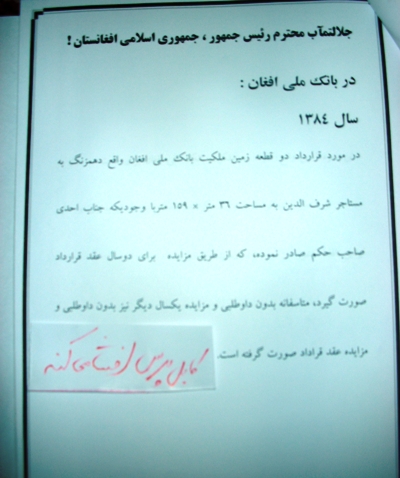 جلالتمآب محترم رئیس جمهور ، جمهوری اسلامی افغانستان !
در بانک ملی افغان :
سال ۱۳۸٤
در مورد قرارداد دو قطعه زمین ملکیت بانک ملی افغان واقع دهمزنگ به
مستأجر شرف الدین به مساحت ۳٦ متر × ۱٥۹ متربا وجودیکه جناب احدی
صاحب حکم صادر نموده، که از طریق مزایده برای دوسال عقد قرارداد
صورت گیرد، متاسفانه بدون داوطلبی و مزایده یکسال دیگر نیز بدون داوطلبی و
مزایده عقد قراداد صورت گرفته است.
کابل پرس افشا می کند